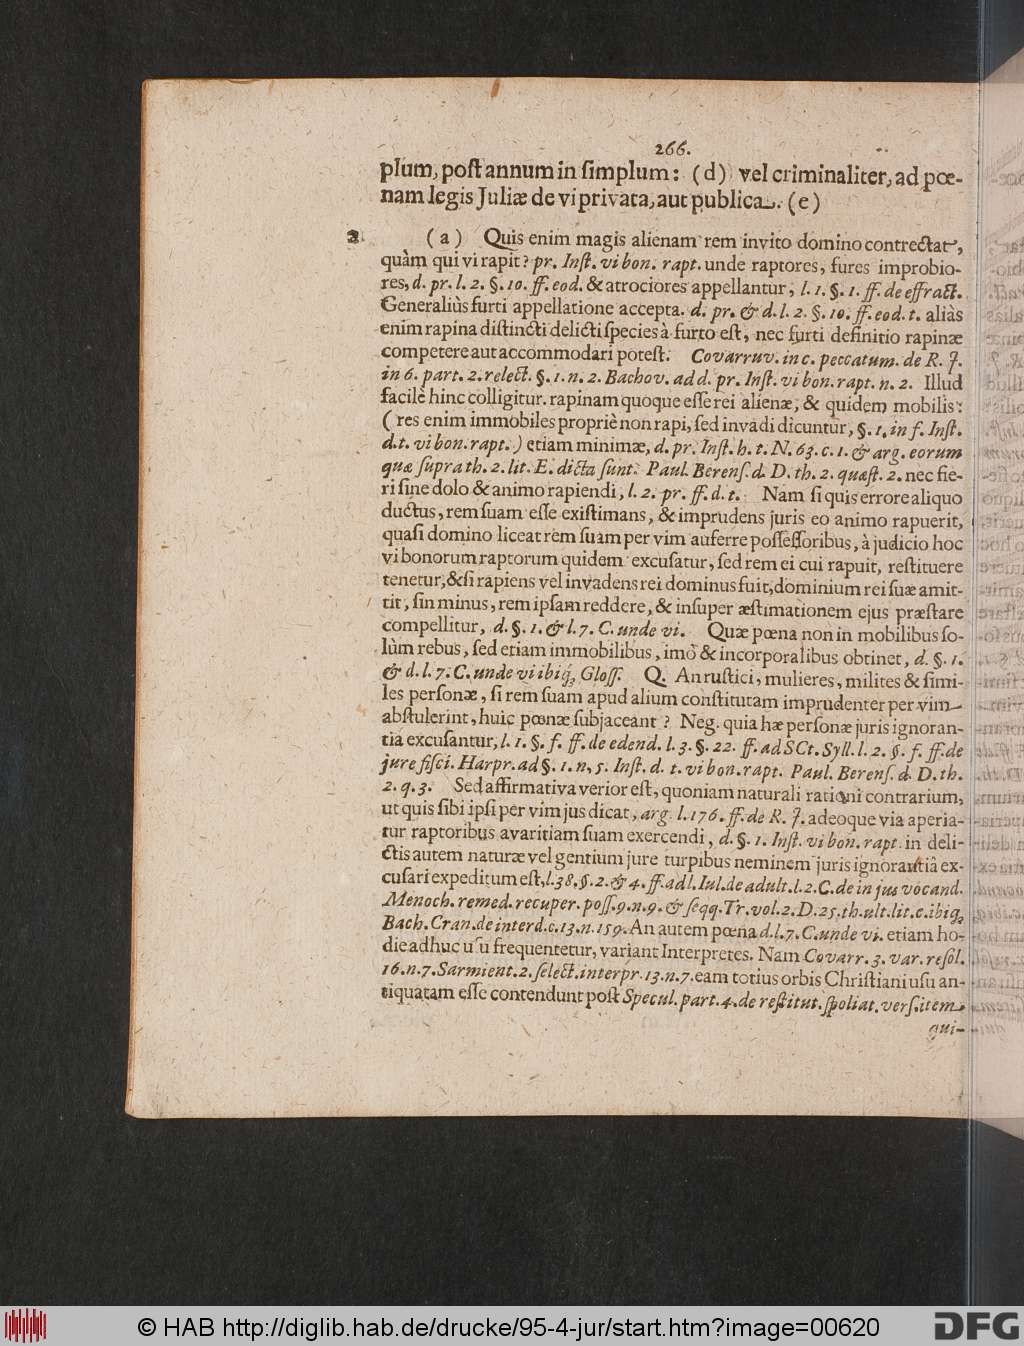 266.
plum, post annum in simplum: (d) vel criminaliter, ad pœ-
nam legis Juliæ de vi privata, aut publica. (e)
a (a) Quis enim magis alienam rem invito domino contrectat,
quàm qui vi rapit? pr. Inst. vi bon. rapt. unde raptores, fures improbio-
res, d. pr. l. 2. §. 10. ff. eod. & atrociores appellantur, l. 1. §. 1. ff. de effract.
Generaliùs furti appellatione accepta. d. pr. & d. l. 2. §. 10. ff. eod. t. aliàs
enim rapina distincti delicti species à furto est, nec furti definitio rapinæ
competere aut accommodari potest. Covarruv. in c. peccatum. de R. J.
in 6. part. 2. relect. §. 1. n. 2. Bachov. ad d. pr. Inst. vi bon. rapt. n. 2. Illud
facilè hinc colligitur. rapinam quoque esse rei alienæ, & quidem mobilis:
(res enim immobiles propriè non rapi, sed invadi dicuntur, §. 1. in f. Inst.
d. t. vi bon. rapt.) etiam minimæ, d. pr. Inst. h. t. N. 63. c. 1. & arg. eorum
quæ supra th. 2. lit. E. dicta sunt. Paul. Berens. d. D. th. 2. quæst. 2. nec fie-
ri sine dolo & animo rapiendi, l. 2. pr. ff. d. t. Nam si quis errore aliquo
ductus, rem suam esse existimans, & imprudens juris eo animo rapuerit,
quasi domino liceat rem suam per vim auferre possessoribus, à judicio hoc
vi bonorum raptorum quidem excusatur, sed rem ei cui rapuit, restituere
tenetur, & si rapiens vel invadens rei dominus fuit, dominium rei suæ amit-
tit, sin minus, rem ipsam reddere, & insuper æstimationem ejus præstare
compellitur, d. §. 1. & l. 7. C. unde vi. Quæ pœna non in mobilibus so-
lùm rebus, sed etiam immobilibus, imò & incorporalibus obtinet, d. §. 1.
& d. l. 7. C. unde vi ibiq; Gloss. Q. An rustici, mulieres, milites & simi-
les personæ, si rem suam apud alium constitutam imprudenter per vim
abstulerint, huic pœnæ subjaceant? Neg. quia hæ personæ juris ignoran-
tia excusantur, l. 1. §. f. ff. de edend. l. 3. §. 22. ff. ad SCt. Syll. l. 2. §. f. ff. de
jure fisci. Harpr. ad §. 1. n. 5. Inst. d. t. vi bon. rapt. Paul. Berens. d. D. th.
2. q. 3. Sed affirmativa verior est, quoniam naturali rationi contrarium,
ut quis sibi ipsi per vim jus dicat, arg. l. 176. ff. de R. J. adeoque via aperia-
tur raptoribus avaritiam suam exercendi, d. §. 1. Inst. vi bon. rapt. in deli-
ctis autem naturæ vel gentium jure turpibus neminem juris ignorantiâ ex-
cusari expeditum est, l. 38. §. 2. & 4. ff. ad l. Iul. de adult. l. 2. C. de in jus vocand.
Menoch. remed. recuper. poss. 9. n. 9. & seqq. Tr. vol. 2. D. 25. th. ult. lit. c. ibiq;
Bach. Cran. de interd. c. 13. n. 159. An autem pœna d. l. 7. C. unde vi. etiam ho-
die adhuc usu frequentetur, variant Interpretes. Nam Covarr. 3. var. resol.
16. n. 7. Sarmient. 2. select. interpr. 13. n. 7. eam totius orbis Christiani usu an-
tiquatam esse contendunt post Specul. part. 4. de restitut. spoliat. vers. item
qui-
© HAB http://diglib.hab.de/drucke/95-4-jur/start.htm?image=00620
DFG